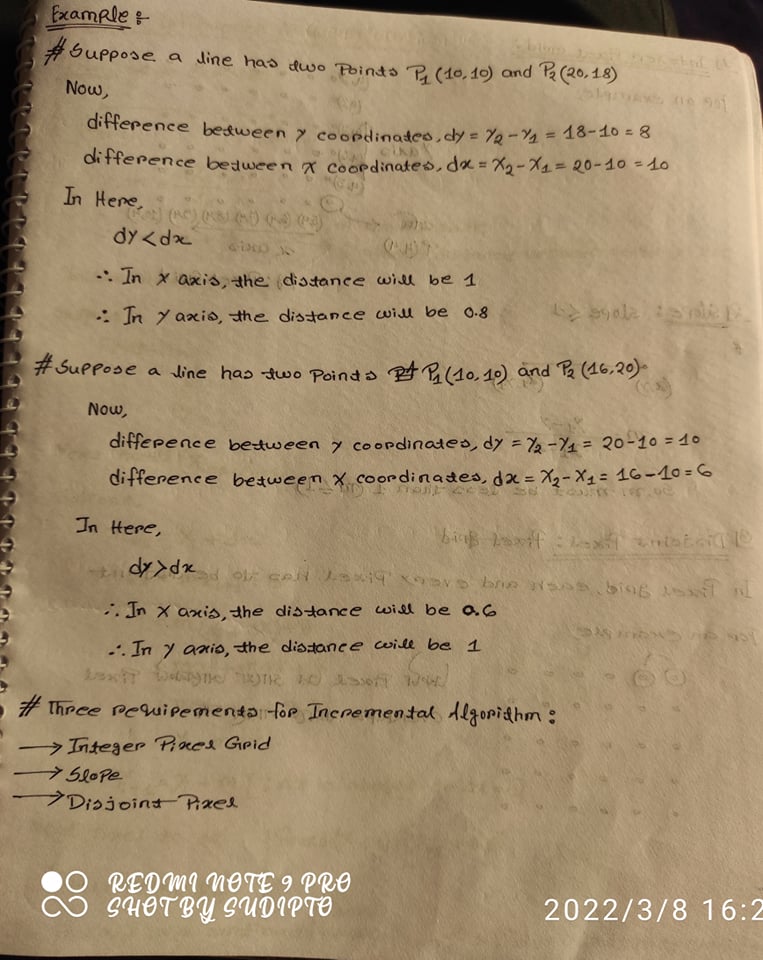 Example:
# Suppose a line has two Points P1 (10,10) and P2 (20,18)
Now,
difference between y coordinates, dy = y2 - y1 = 18-10 = 8
difference between x coordinates, dx = x2 - x1 = 20-10 = 10
In Here,
dy < dx
∴ In x axis, the distance will be 1
∴ In y axis, the distance will be 0.8
# Suppose a line has two Points P1 (10,10) and P2 (16,20)
Now,
difference between y coordinates, dy = y2 - y1 = 20-10 = 10
difference between x coordinates, dx = x2 - x1 = 16-10 = 6
In Here,
dy > dx
∴ In x axis, the distance will be 0.6
∴ In y axis, the distance will be 1
# Three requirements for Incremental Algorithm:
→ Integer Pixel Grid
→ Slope
→ Disjoint Pixel
REDMI NOTE 9 PRO
SHOT BY SUDIPTO
2022/3/8 16:2